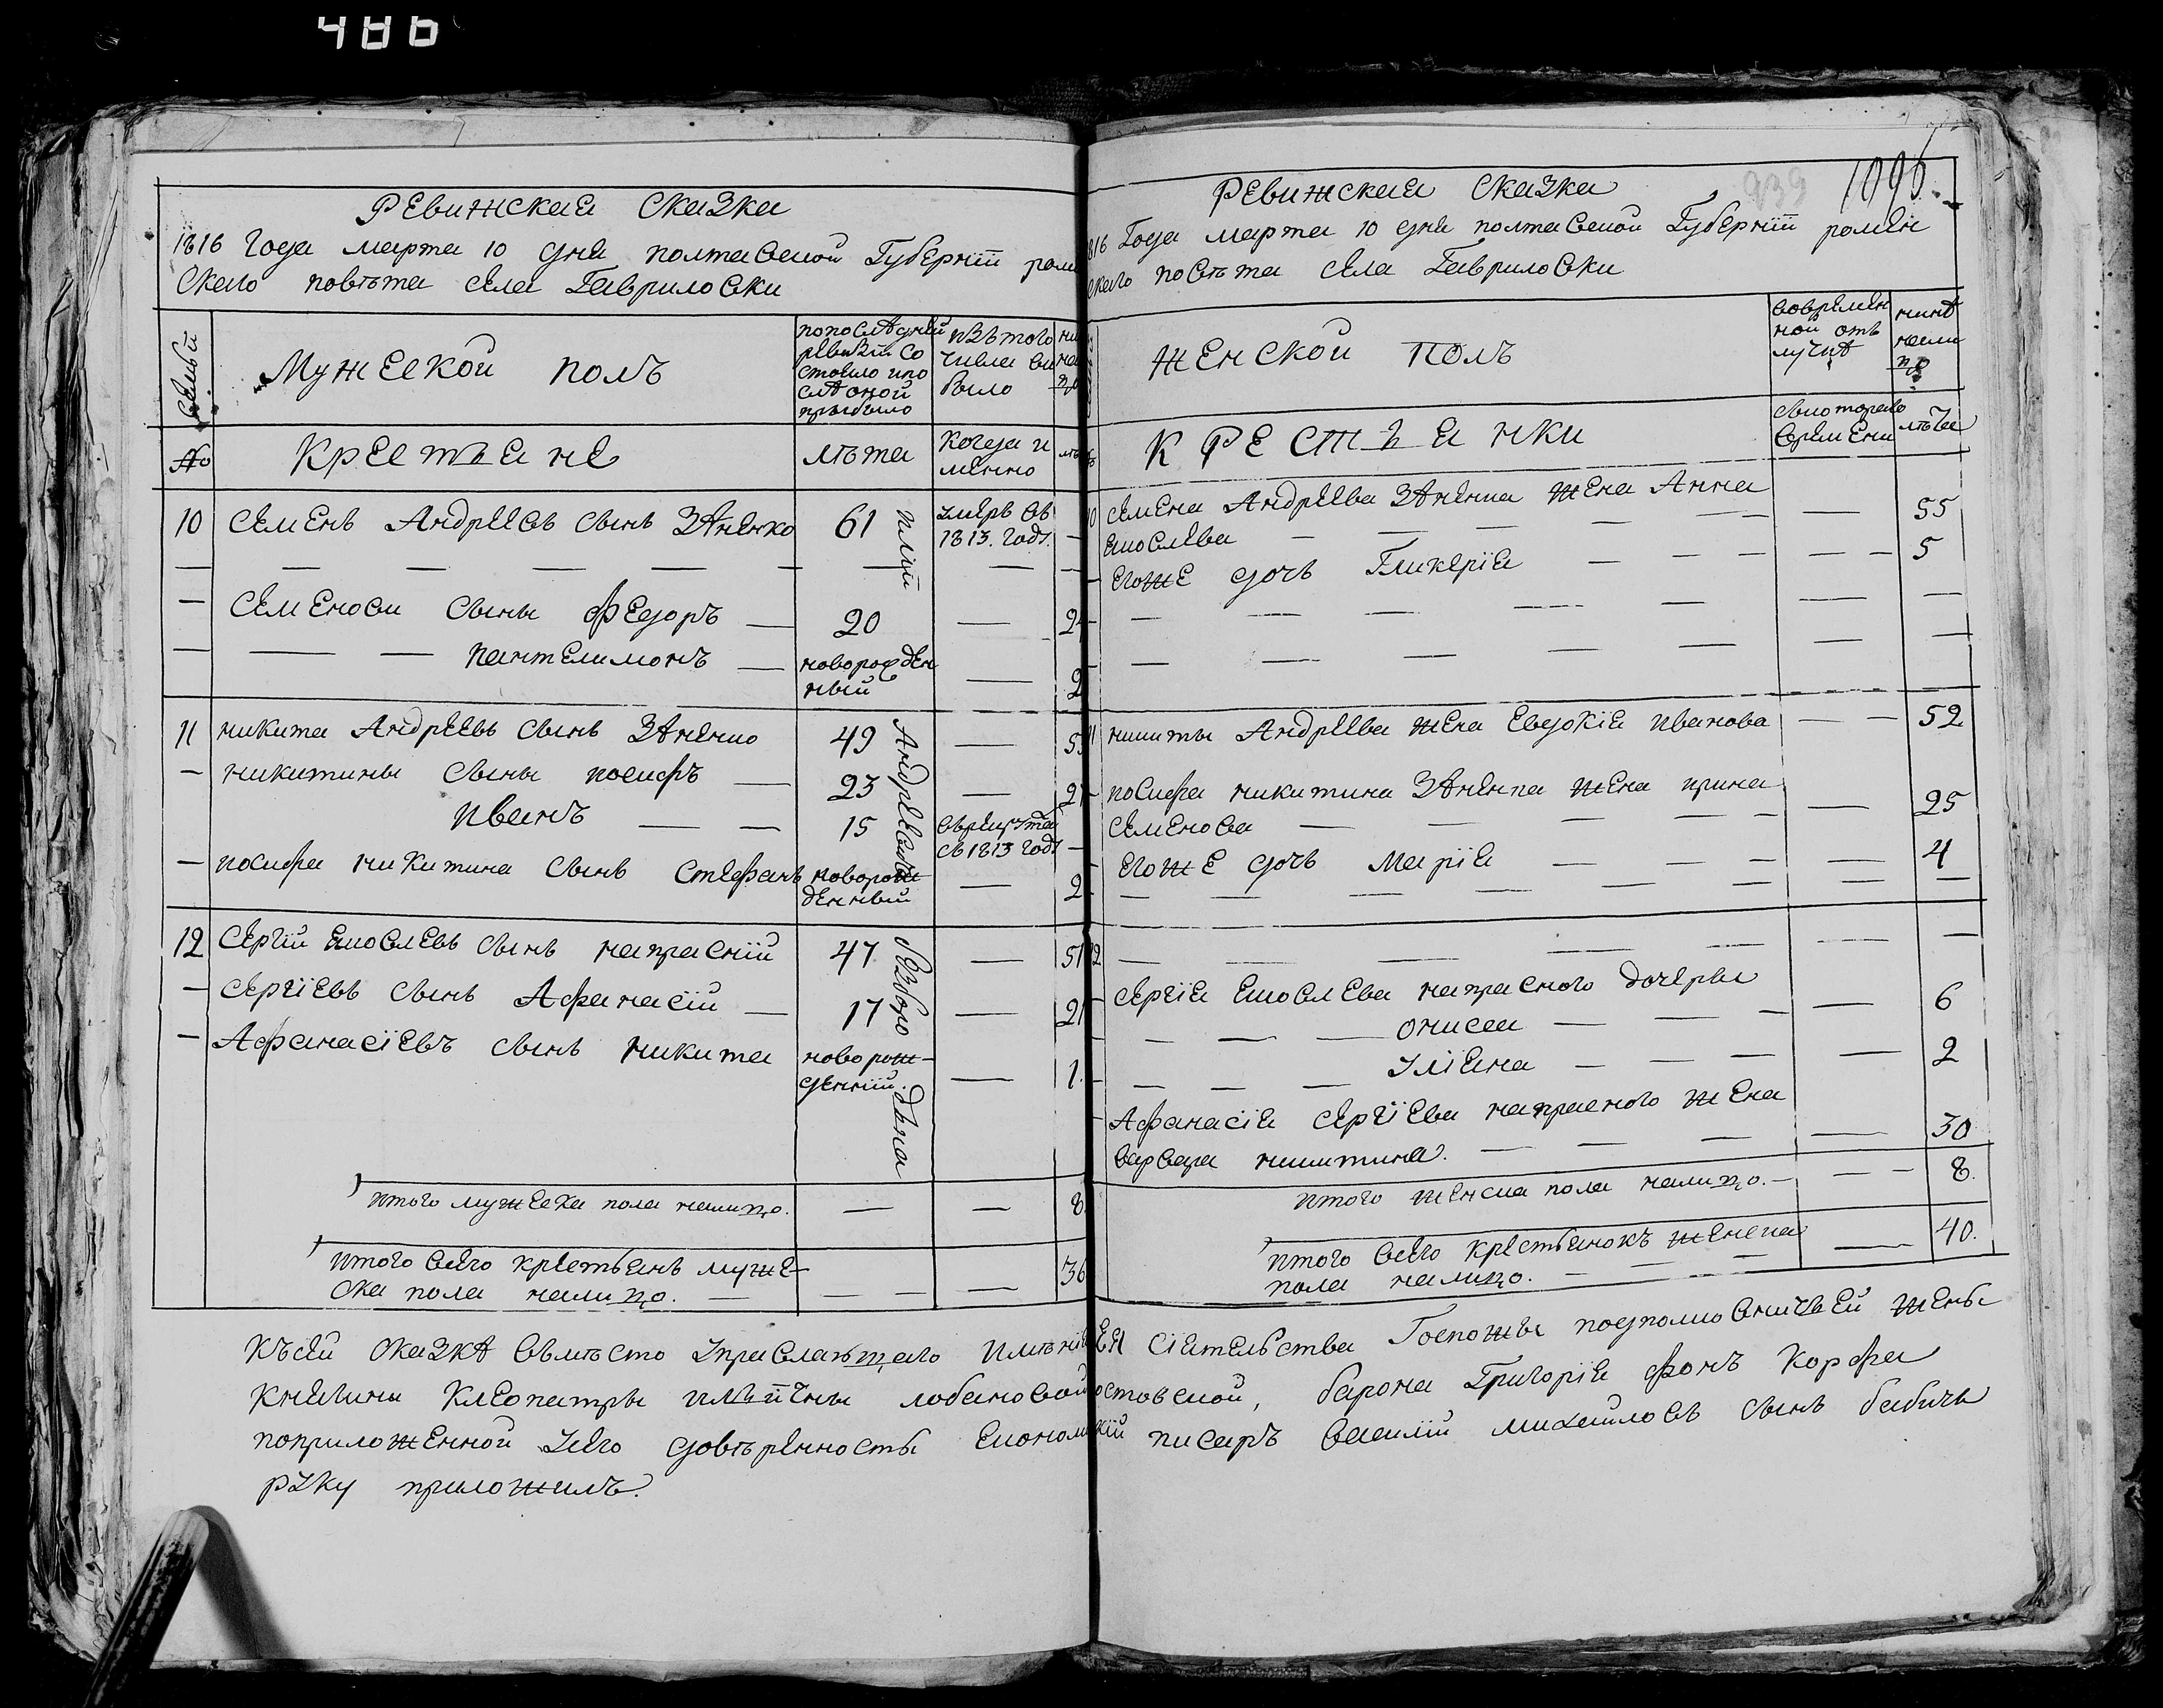 486
Ревижская Сказка
1816 Года марта 10 дня полтавской Губернїи ром
скаго повѣта села Гавриловки
Семьи
Мужеской полъ
попослѣдней ревизїи состояло ипослѣ оной прибыло
изътого числа выбыло
№
Крестьяне
лѣта
Когда именно
10 Семенъ Андреевъ сынъ Зѣненко 61 умеръ въ 1813. году. —
— Семеновы сыны Федоръ — 20 —
— — — пантелимонъ — новорожденный —
11 никита Андреевъ сынъ Зѣненко 49 —
— никитины сыны иосифъ — 23 —
иванъ — — 15 врекрута въ 1813 году —
— иосифа никитина сынъ Стефанъ новорожденный — 2
12 Сергїй Яковлевъ сынъ напраснїй 47 — 51
— Сергїевъ сынъ Афанасїй — 17 — 21
— Афанасїевъ сынъ никита новорожденнїй. — 1.
Андреевича
итого мужеска пола налицо. — — 8.
итого всего крестьянъ муже-
ска пола налицо. — — — — 36
1096.
939
Ревижская Сказка
1816 Года марта 10 дня полтавской Губернїи ромен
скаго повѣта села Гавриловки
женской полъ
вовременной отълучкѣ
нынѣ налицо
Крестьянки
скоторого времени
лѣта
10 Семена Андреева Зѣненка жена Анна
Яковлева — — — — — — 55
егоже дочь Гликерїя — — — — — 5
11 никиты Андреева жена Евдокїя иванова — — 52
иосифа никитина Зѣненка жена ирина
Семенова — — — — — — 25
— егоже дочь марїя — — — — 4
12 — — — — — — — —
Сергїя Яковлева напрасного дочеры
— — — онисея — — — — 6
— — — Улїяна — — — — 2
— Афанасїя Сергїева напрасного жена
варвара никитина. — — — — 30
итого женска пола налицо. — — — 8.
итого всего крестьянокъ женска
пола налицо. — — — — 40.
Късей сказкѣ вмѣсто управляющаго имѣнїя Ея сїятельства Госпожы подполковничьей жены
княгини Клеопатры ильиичны лобановой ростовской, барона Григорїя фонъ Корфа
поприложенной унего довѣренносты економ кїй писаръ василїй михайловъ сынъ бабичъ
руку приложилъ.